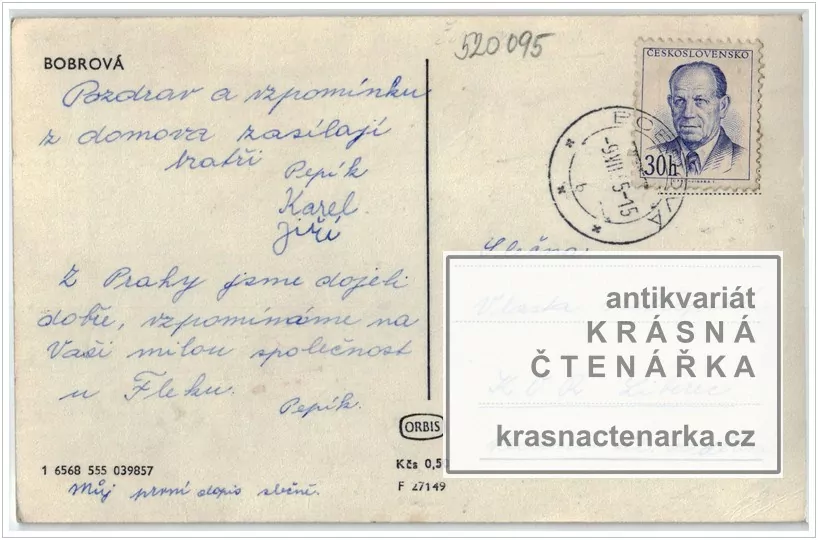 BOBROVÁ
520095
ČESKOSLOVENSKO
30h
Pozdrav a vzpomínku
z domova zasílají
bratři
Pepík
Karel
Jiří
Z Prahy jsme dojeli
dobře, vzpomínáme na
Vaši milou společnost
u Fleku.
Pepík.
Slečna
antikvariát
KRÁSNÁ
ČTENÁŘKA
krasnactenarka.cz
ORBIS
Kčs 0,5
F 27149
1 6568 555 039857
Můj první dopis slečně.